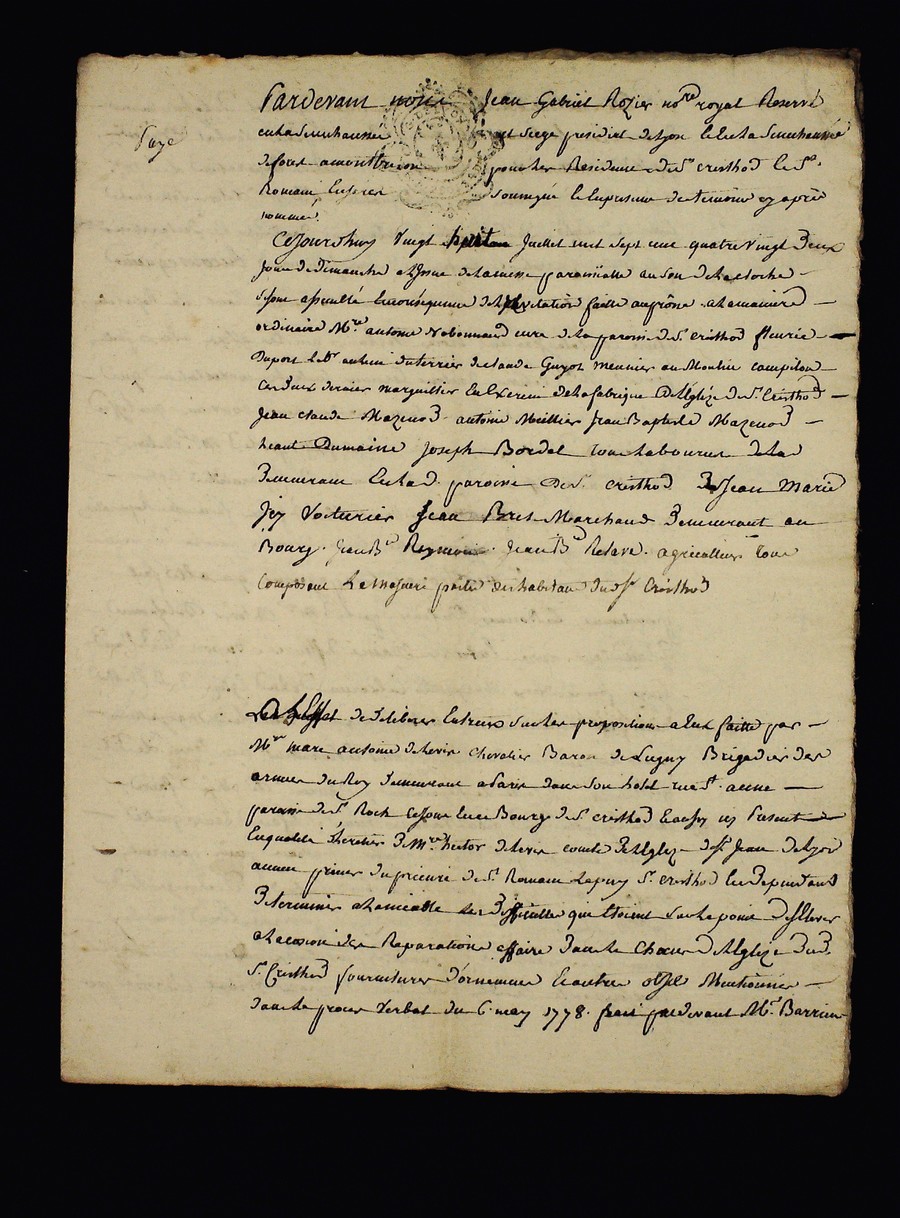 Payé
Pardevant nous Jean Gabriel Rozier no.re royal Reservé
en la Senechaussée et siege presidial de Lyon et en la Senechaussée
de forest a montbrison pour les Residence de S.t cristhod le S.t
Romain soussigné et en presence des temoins cy après
nommé.
Cejourdhuy vingt huit Juillet mil sept cent quatre vingt deux
Jour de Dimanche a l'issue de la messe paroissialle au son de la cloche
se sont assemblé en consequence de l'invitation faitte au prône a la maniere
ordinaire M.re antoine curé de la paroisse de S.t cristhod fleurie
Duport Lab.r au lieu du terrier Claude Guyot meunier au Moulin
ces deux dernier marguillier en Exercice de la fabrique de l'Eglize de S.t Cristhod
Jean claude Mazenod antoine Meillier Jean Baptiste Mazenod
Dumaine Joseph Bordet tous laboureur de la
demeurant en lad. paroisse de S.t cristhod Jean Marie
voiturier Jean Marchand demeurant au
Bourg. Jean B.te Jean B.te agriculteur tous
composant la majeure partie des habitan dud. S.t Cristhod
a l'Effet de deliberer entreux sur les proposition a eux faitte par
M.re marc antoine de levis chevalier Baron de Lugny Brigadier des
armées du Roy demeurant a Paris dans son hotel rue S.t anne
paroisse de S.t Roch ce jour en ce Bourg de S.t cristhod icy present
en qualité d'heretier de M.re hector de levis comte de l'Eglize de S.t Jean de Lyon
ancien prieur du prieuré de S.t Romain Lepuy S.t cristhod en dependant
de terminer a l'amiable les difficultés qui etoient sur le point de s'elever
a l'occasion des Reparations affaire dans le Choeur de l'Eglize dud.
S.t Cristhod fournitures d'ornement et autre objet Mentionnés
dans le proces verbal du 6. may 1778. fait pardevant M.e